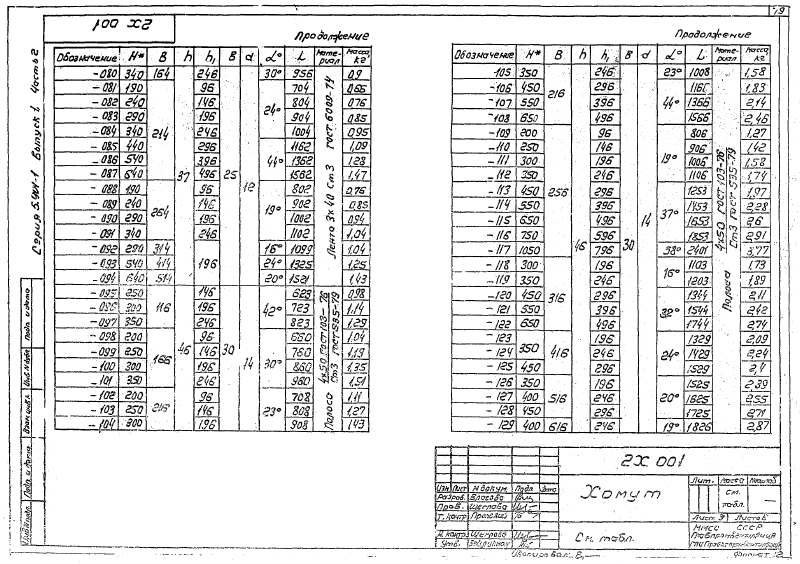 79
2Х 001
Серия 5.904-1 Выпуск 1 Часть 2
Продолжение
Обозначение H* B h h₁ B d α° L Материал Масса кг
-080 340 164 37 246 25 12 30° 956 Лента 3х40 Ст3 ГОСТ 6009-74 0,9
-081 190 214 96 24° 704 0,65
-082 240 146 804 0,76
-083 290 196 904 0,85
-084 340 246 1004 0,95
-085 440 296 44° 1162 1,09
-086 540 396 1362 1,28
-087 640 496 1562 1,47
-088 190 264 96 19° 802 0,76
-089 240 146 902 0,85
-090 290 196 1002 0,94
-091 340 246 1102 1,04
-092 290 314 196 16° 1099 1,04
-093 540 414 24° 1325 1,25
-094 640 514 20° 1521 1,43
-095 250 116 46 146 30 14 42° 623 Полоса 4х50 ГОСТ 103-76 Ст3 ГОСТ 535-79 0,98
-096 300 196 723 1,14
-097 350 246 823 1,29
-098 200 166 96 30° 660 1,04
-099 250 146 760 1,19
-100 300 196 860 1,35
-101 350 246 960 1,51
-102 200 216 96 23° 708 1,11
-103 250 146 808 1,27
-104 300 196 908 1,43
Продолжение
Обозначение H* B h h₁ B d α° L Материал Масса кг
-105 350 216 46 246 30 14 23° 1008 Полоса 4х50 ГОСТ 103-76 Ст3 ГОСТ 535-79 1,58
-106 450 296 44° 1166 1,83
-107 550 396 1366 2,14
-108 650 496 1566 2,46
-109 200 256 96 19° 806 1,27
-110 250 146 906 1,42
-111 300 196 1006 1,58
-112 350 246 1106 1,74
-113 450 296 37° 1253 1,97
-114 550 396 1453 2,28
-115 650 496 1653 2,6
-116 750 596 1853 2,91
-117 1050 796 58° 2401 3,77
-118 300 316 196 16° 1103 1,73
-119 350 246 1203 1,89
-120 450 296 32° 1344 2,11
-121 550 396 1544 2,42
-122 650 496 1744 2,74
-123 350 416 196 24° 1329 2,09
-124 246 1429 2,24
-125 450 296 1529 2,4
-126 350 516 196 20° 1525 2,39
-127 400 246 1625 2,55
-128 450 296 1725 2,71
-129 400 616 246 19° 1826 2,87
2Х 001
Хомут
Лит. Масса Масштаб
См. табл.
Изм Лист № докум. Подп. Дата
Разраб. Власова
Пров. Щеглова
Т. контр.
Лист 9 Листов
Н. контр. Щеглова
Утв.
См. табл.
ММСС СССР
Копировал:
Формат: 12
Подп. и дата
Инв. № дубл.
Взам. инв. №
Подп. и дата